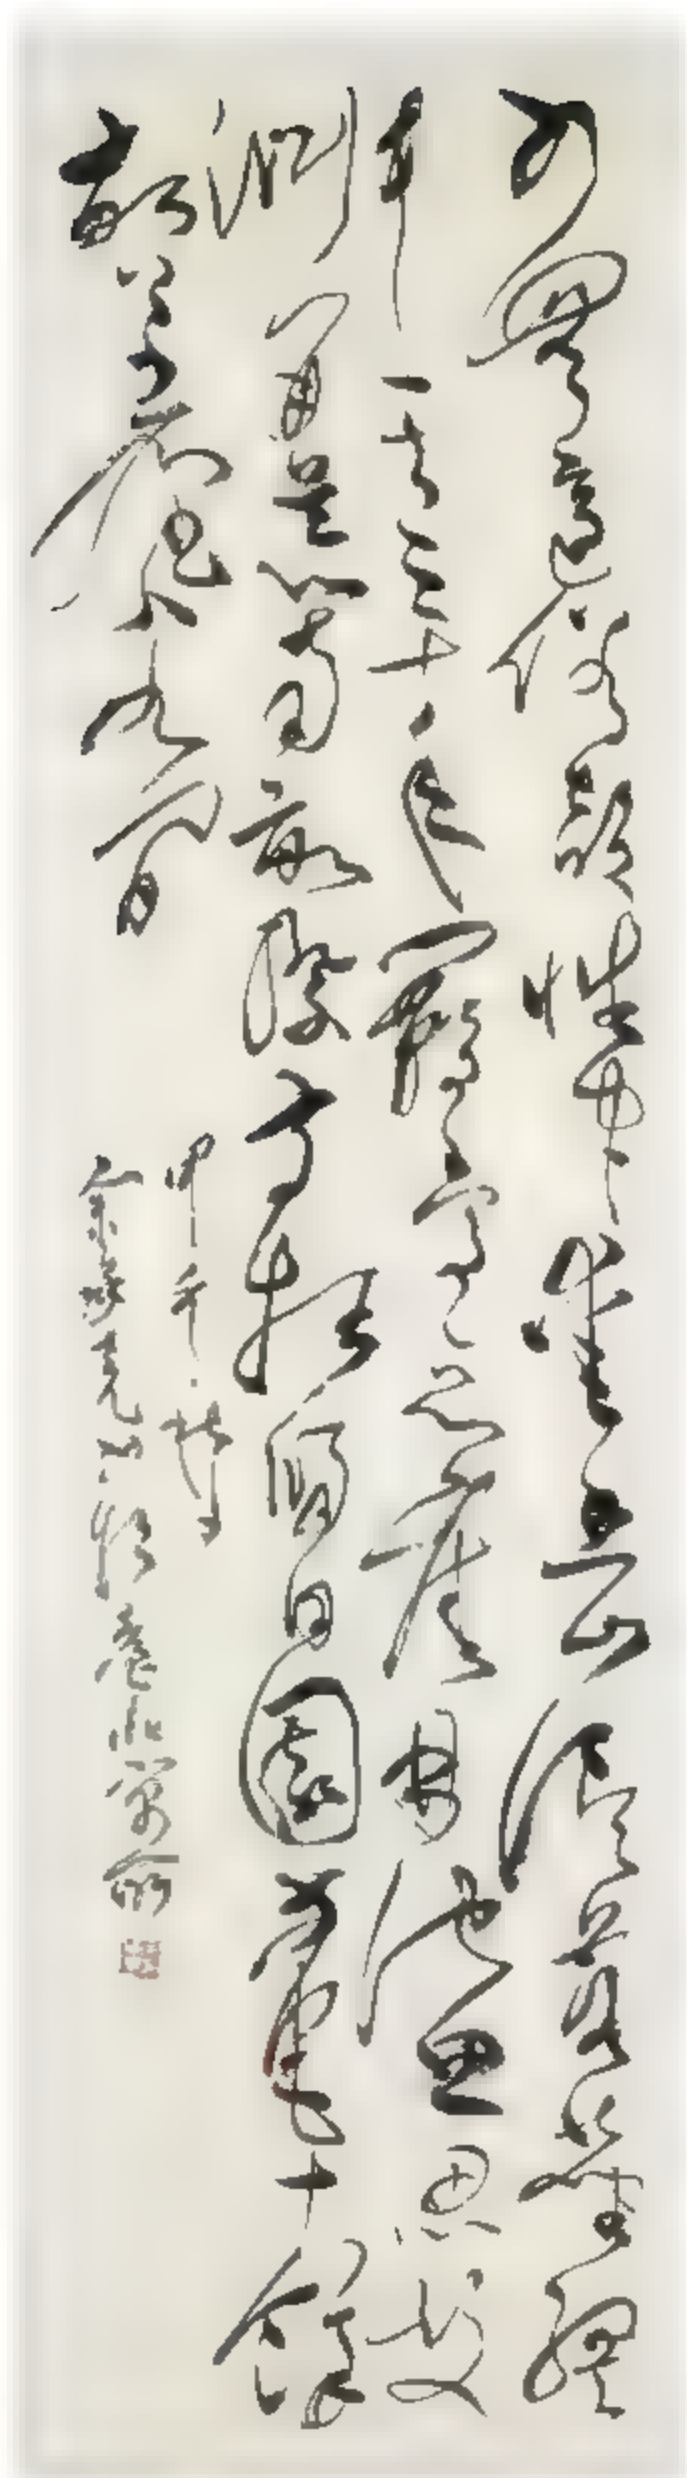 少無適俗韻性本愛丘山誤落塵網
中一去三十年羈鳥戀舊林池魚思故
淵開荒南畝際守拙歸田園方宅十餘
畝草屋八九間
甲午秋日